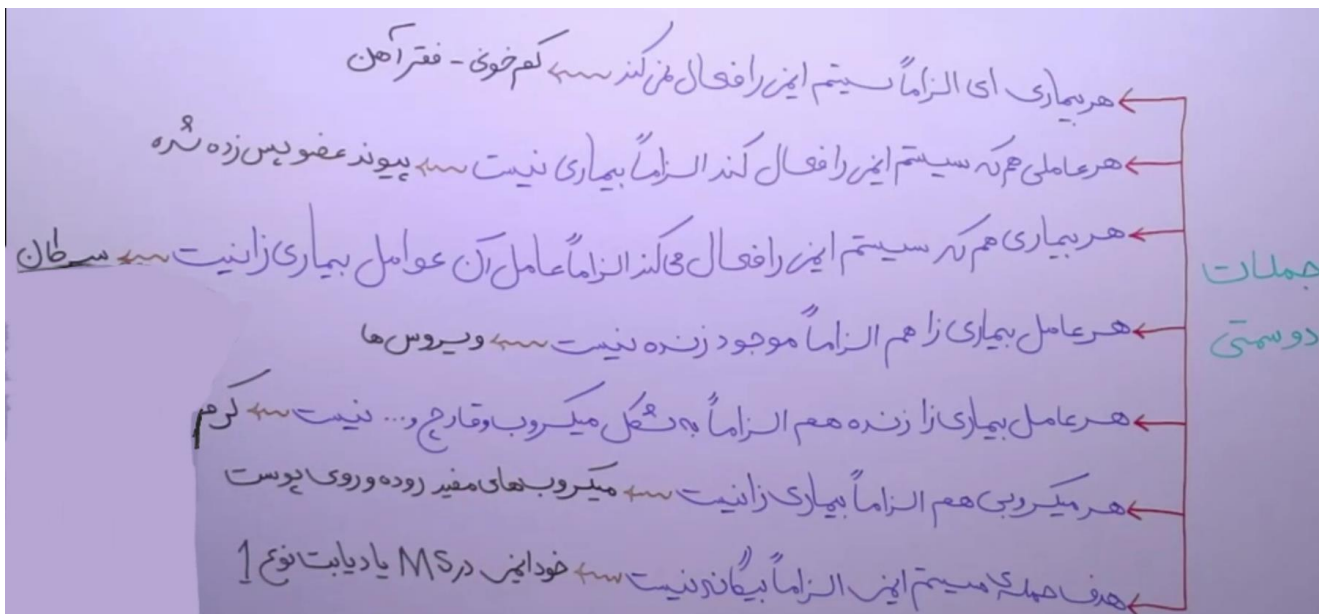 جملات
دوستی
هر بیماری ای الزاماً سیستم ایمنی را فعال نمی کند ← کم خونی - فقر آهن
هر عاملی هم که سیستم ایمنی را فعال کند الزاماً بیماری نیست ← پیوند عضو پس زده شده
هر بیماری هم که سیستم ایمنی را فعال می کند الزاماً عامل آن عوامل بیماری زا نیست ← سرطان
هر عامل بیماری زا هم الزاماً موجود زنده نیست ← ویروس ها
هر عامل بیماری زا زنده هم الزاماً به شکل میکروب و قارچ و... نیست ← کرم
هر میکروبی هم الزاماً بیماری زا نیست ← میکروب های مفید روده و روی پوست
هدف حمله ی سیستم ایمنی الزاماً بیگانه نیست ← خود ایمنی در MS یا دیابت نوع 1